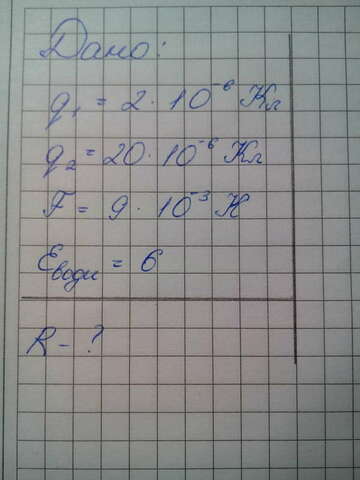 Дано:
q₁ = 2 · 10⁻⁶ Кл
q₂ = 20 · 10⁻⁶ Кл
F = 9 · 10⁻³ Н
Eводи = 6
R - ?